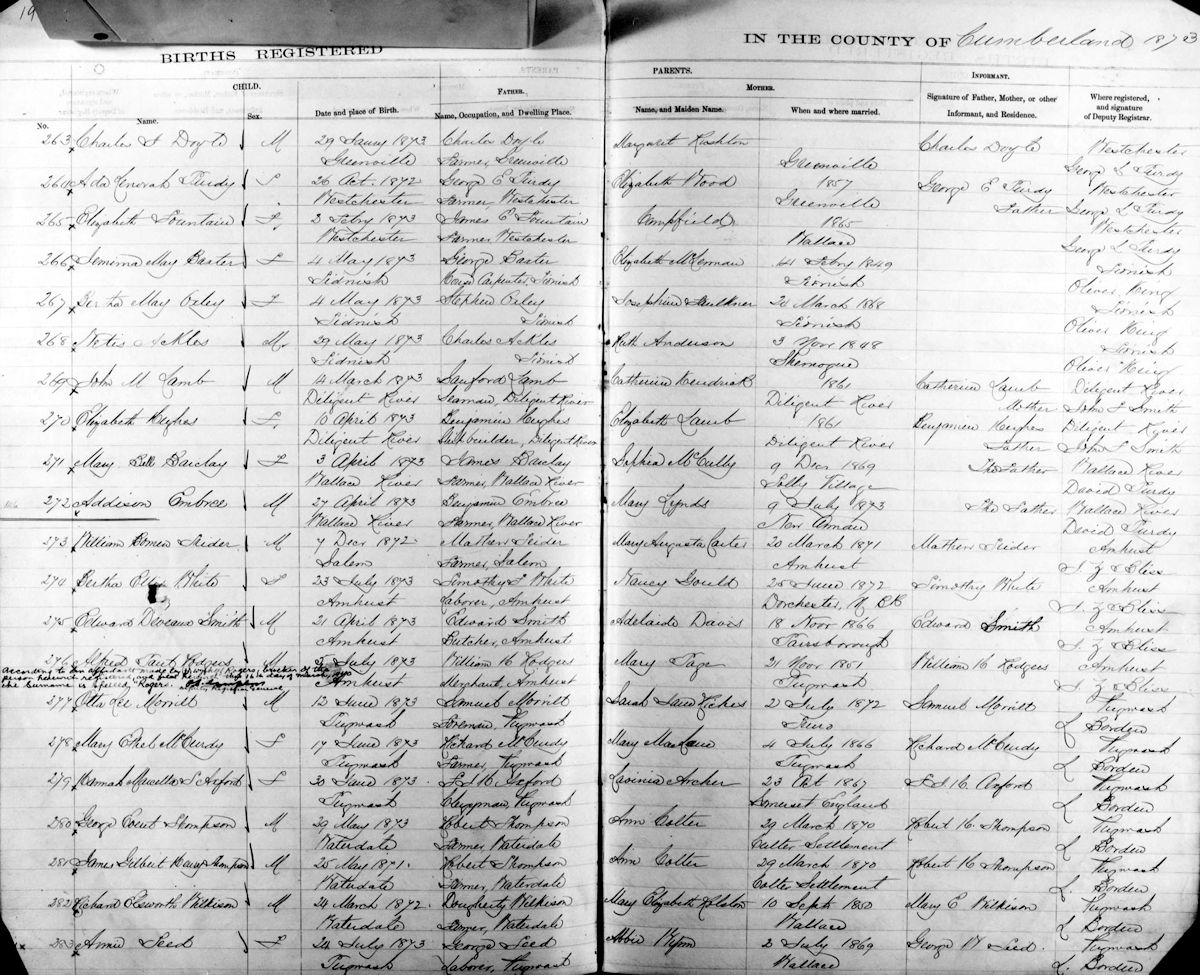 19
BIRTHS REGISTERED
IN THE COUNTY OF Cumberland 1873
CHILD.
PARENTS.
INFORMANT.
FATHER.
MOTHER.
No. Name. Sex. Date and place of Birth. Name, Occupation, and Dwelling Place. Name, and Maiden Name. When and where married. Signature of Father, Mother, or other Informant, and Residence. Where registered, and signature of Deputy Registrar.
263 Charles Doyle M 29 1873 Charles Doyle Margaret Charles Doyle Westchester
Greenville Farmer, Greenville Greenville George Purdy
264 Ada Purdy F 26 Oct. 1872 George E Purdy Elizabeth Wood 1857 George E Purdy Westchester
Westchester Farmer, Westchester Greenville Father George Purdy
265 Elizabeth Fountain F 3 Feby 1873 James E Fountain Campfield 1865 Westchester
Westchester Farmer, Westchester Wallace George Purdy
266 Jemima May Baxter F 4 May 1873 George Baxter Elizabeth McKernan Feby 1849 Tidnish
Tidnish House Carpenter, Tidnish Tidnish Oliver King
267 Bertha May Oxley F 4 May 1873 Stephen Oxley Josephine Faulkner 24 March 1868 Tidnish
Tidnish Tidnish Tidnish Oliver King
268 Ackles M 29 May 1873 Charles Ackles Ruth Anderson 3 Novr 1848 Tidnish
Tidnish Tidnish Oliver King
269 John M Lamb M 4 March 1873 Sanford Lamb Catherine Kendrick 1861 Catherine Lamb Diligent River
Diligent River Seaman, Diligent River Diligent River Mother John Smith
270 Elizabeth Hughes F 10 April 1873 Benjamin Hughes Elizabeth Lamb 1861 Benjamin Hughes Diligent River
Diligent River Shipbuilder, Diligent River Diligent River Father John Smith
271 Mary Bell Barclay F 3 April 1873 James Barclay Sophia McCully 9 Decr 1869 The Father Wallace River
Wallace River Farmer, Wallace River Folly Village David Purdy
272 Addison Embree M 27 April 1873 Benjamin Embree Mary 9 July 1873 The Father Wallace River
Wallace River Farmer, Wallace River New Annan David Purdy
273 William Bowen M 7 Decr 1872 Mary Augusta Carter 20 March 1871 Amherst
Salem Farmer, Salem Amherst Bliss
274 Bertha White F 23 July 1873 Timothy White Nancy Gould 25 June 1872 Timothy White Amherst
Amherst Laborer, Amherst Dorchester, N B Bliss
275 Edward Deveaux Smith M 21 April 1873 Edward Smith Adelaide Davis 18 Novr 1866 Edward Smith Amherst
Amherst Butcher, Amherst Parrsborough Bliss
276 Alfred Hodgers M July 1873 William H Hodgers Mary Page 21 Novr 1851 William H Hodgers Amherst
According to an affidavit made by Rogers, brother of the
person herewith
the surname is spelled Rogers.
Amherst Merchant, Amherst Pugwash Bliss
277 Morritt M 12 June 1873 Samuel Morritt Sarah Jane 2 July 1872 Samuel Morritt Pugwash
Pugwash Foreman, Pugwash Truro Borden
278 Mary Ethel McCurdy F 17 June 1873 Richard McCurdy Mary 4 July 1866 Richard McCurdy Pugwash
Pugwash Farmer, Pugwash Pugwash Borden
279 Hannah Axford F 30 June 1873 Axford Lavinia Archer 23 Oct 1867 Axford Pugwash
Pugwash Clergyman, Pugwash Somerset England Borden
280 George Thompson M 29 May 1873 Robert Thompson Ann Colter 29 March 1870 Robert H. Thompson Pugwash
Waterdale Farmer, Waterdale Colter Settlement Borden
281 James Gilbert Thompson M 25 May 1871 Robert Thompson Ann Colter 29 March 1870 Robert H Thompson Pugwash
Waterdale Farmer, Waterdale Colter Settlement Borden
282 Richard Wilkison M 24 March 1872 Dougherty Wilkison Mary Elizabeth 10 Sept 1850 Mary E Wilkison Pugwash
Waterdale Farmer, Waterdale Wallace Borden
283 Annie Seed F 24 July 1873 George Seed Abbie 2 July 1869 George Seed Pugwash
Pugwash Laborer, Pugwash Wallace Borden